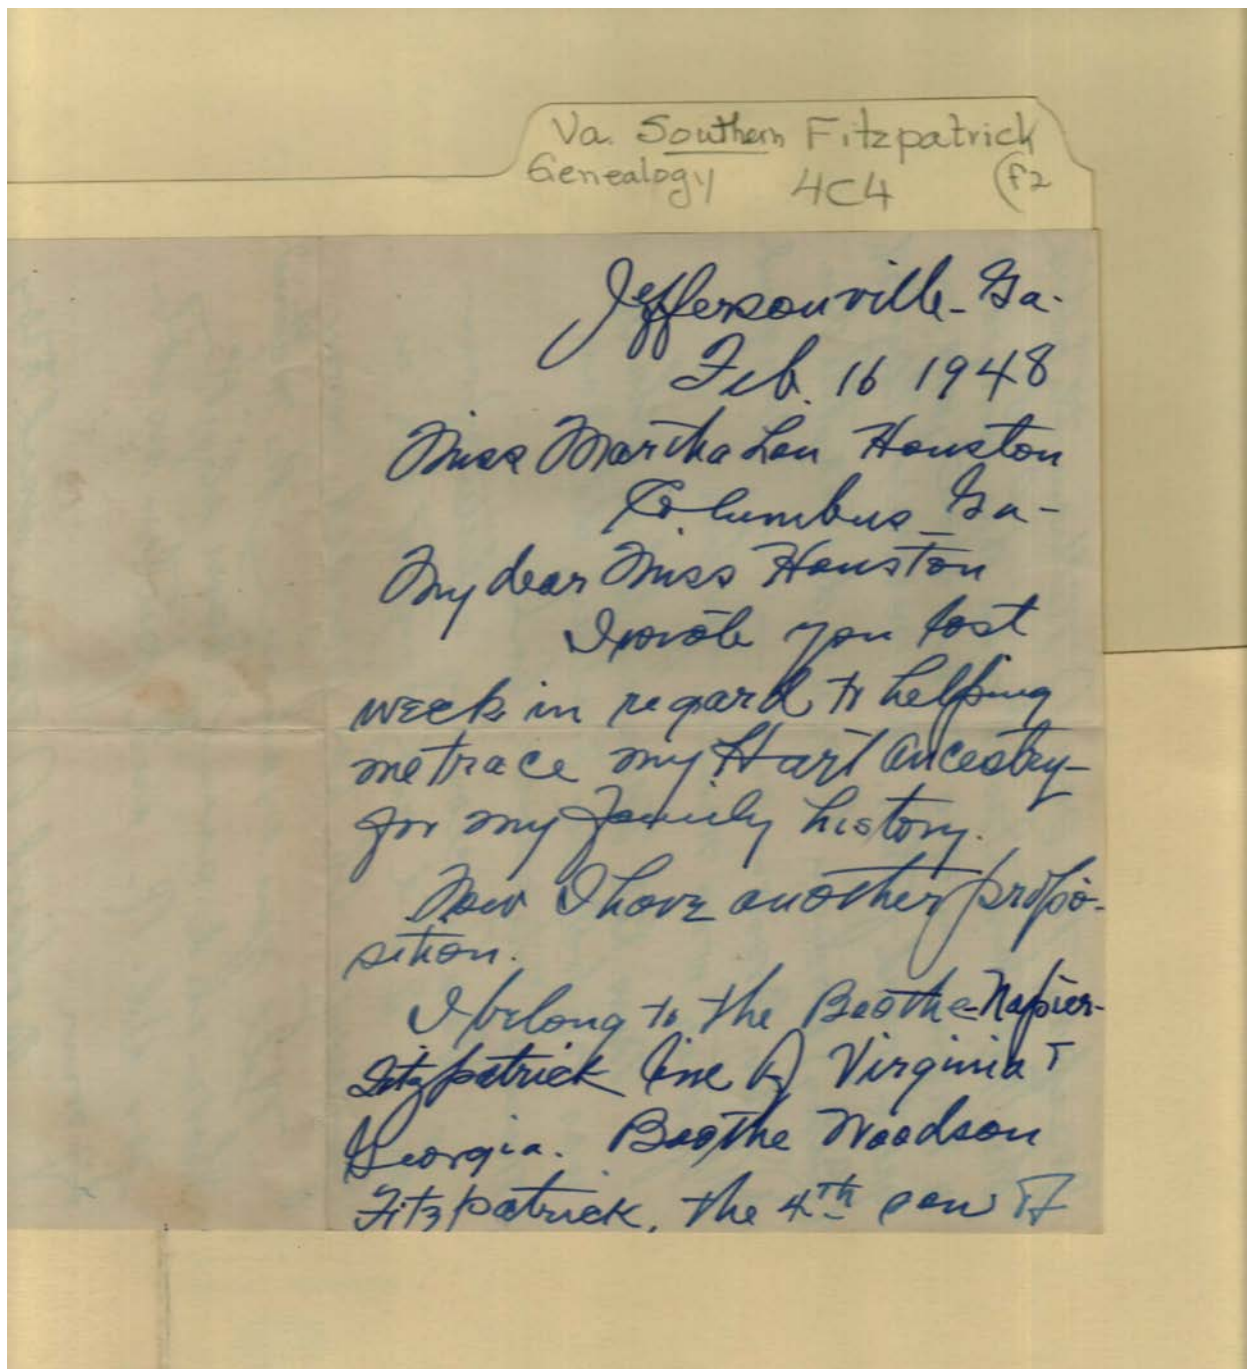 Va. Southern Fitzpatrick
Genealogy 4C4 (F2
Jeffersonville - Ga -
Feb. 16 1948
Miss Martha Lou Houston
Columbus - Ga -
My dear Miss Houston
I wrote you last
week in regard to helping
me trace my Hart Ancestry -
for my family history.
Now I have another propo-
sition.
I belong to the Boothe-Napier-
Fitzpatrick line of Virginia +
Georgia. Boothe Woodson
Fitzpatrick, the 4th son of